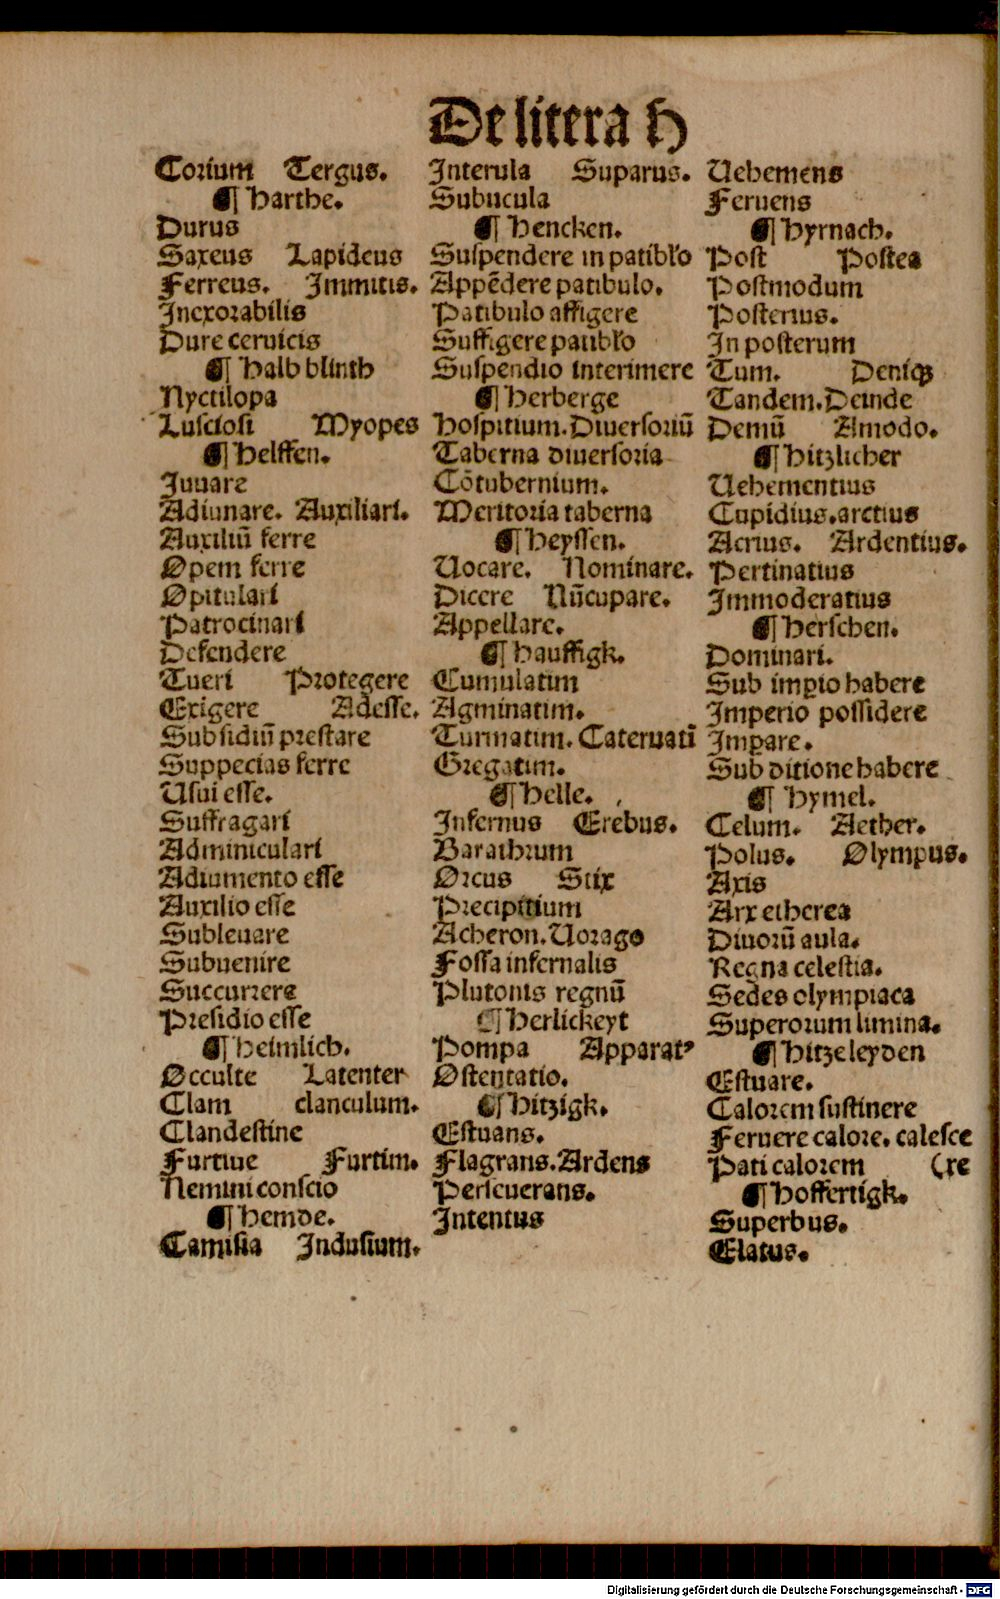 De litera H
Corium Tergus.
¶ Harthe.
Durus
Saxeus Lapideus
Ferreus. Immitis.
Inexorabilis
Dure ceruicis
¶ Halb blinth
Nyctilopa
Lusciosi Myopes
¶ Helffen.
Juuare
Adiunare. Auxiliari.
Auxiliū ferre
Opem ferre
Opitulari
Patrocinari
Defendere
Tueri Protegere
Erigere Adesse.
Subsidiū prestare
Suppecias ferre
Usui esse.
Suffragari
Adminiculari
Adiumento esse
Auxilio esse
Subleuare
Subuenire
Succurrere
Presidio esse
¶ Heimlich.
Occulte Latenter
Clam clanculum.
Clandestine
Furtiue Furtim.
Nemini conscio
¶ Hemde.
Camisia Indusium.
Interula Suparus.
Subucula
¶ Hencken.
Suspendere in patibl'o
Appēdere patibulo.
Patibulo affigere
Suffigere patibl'o
Suspendio interimere
¶ Herberge
Hospitium. Diuersoriū
Taberna diuersoria
Cōtubernium.
Meritoria taberna
¶ Heyssen.
Uocare. Nominare.
Dicere Nūcupare.
Appellare.
¶ Hauffigk.
Cumulatim
Agminatim.
Turmatim. Cateruatī
Gregatim.
¶ Helle.
Infernus Erebus.
Barathrum
Orcus Stix
Precipitium
Acheron. Uorago
Fossa infernalis
Plutonis regnū
¶ Herlickeyt
Pompa Apparatꝰ
Ostentatio.
¶ Hitzigk.
Estuans.
Flagrans. Ardens
Perseuerans.
Intentus
Uehemens
Feruens
¶ Hyrnach.
Post Postea
Postmodum
Posterius.
In posterum
Tum. Deniqꝫ
Tandem. Deinde
Demū Amodo.
¶ Hitzlicher
Uehementius
Cupidius. arctius
Acrius. Ardentius.
Pertinatius
Immoderatius
¶ Herschen.
Dominari.
Sub imꝑio habere
Imperio possidere
Imꝑare.
Sub ditione habere
¶ Hymel.
Celum. Aether.
Polus. Olympus.
Axis
Arx etherea
Diuorū aula.
Regna celestia.
Sedes olympiaca
Superorum limina.
¶ Hitze leyden
Estuare.
Calorem sustinere
Feruere calore. calesce
Pati calorem (re
¶ Hoffertigk.
Superbus.
Elatus.
Digitalisierung gefördert durch die Deutsche Forschungsgemeinschaft - DFG